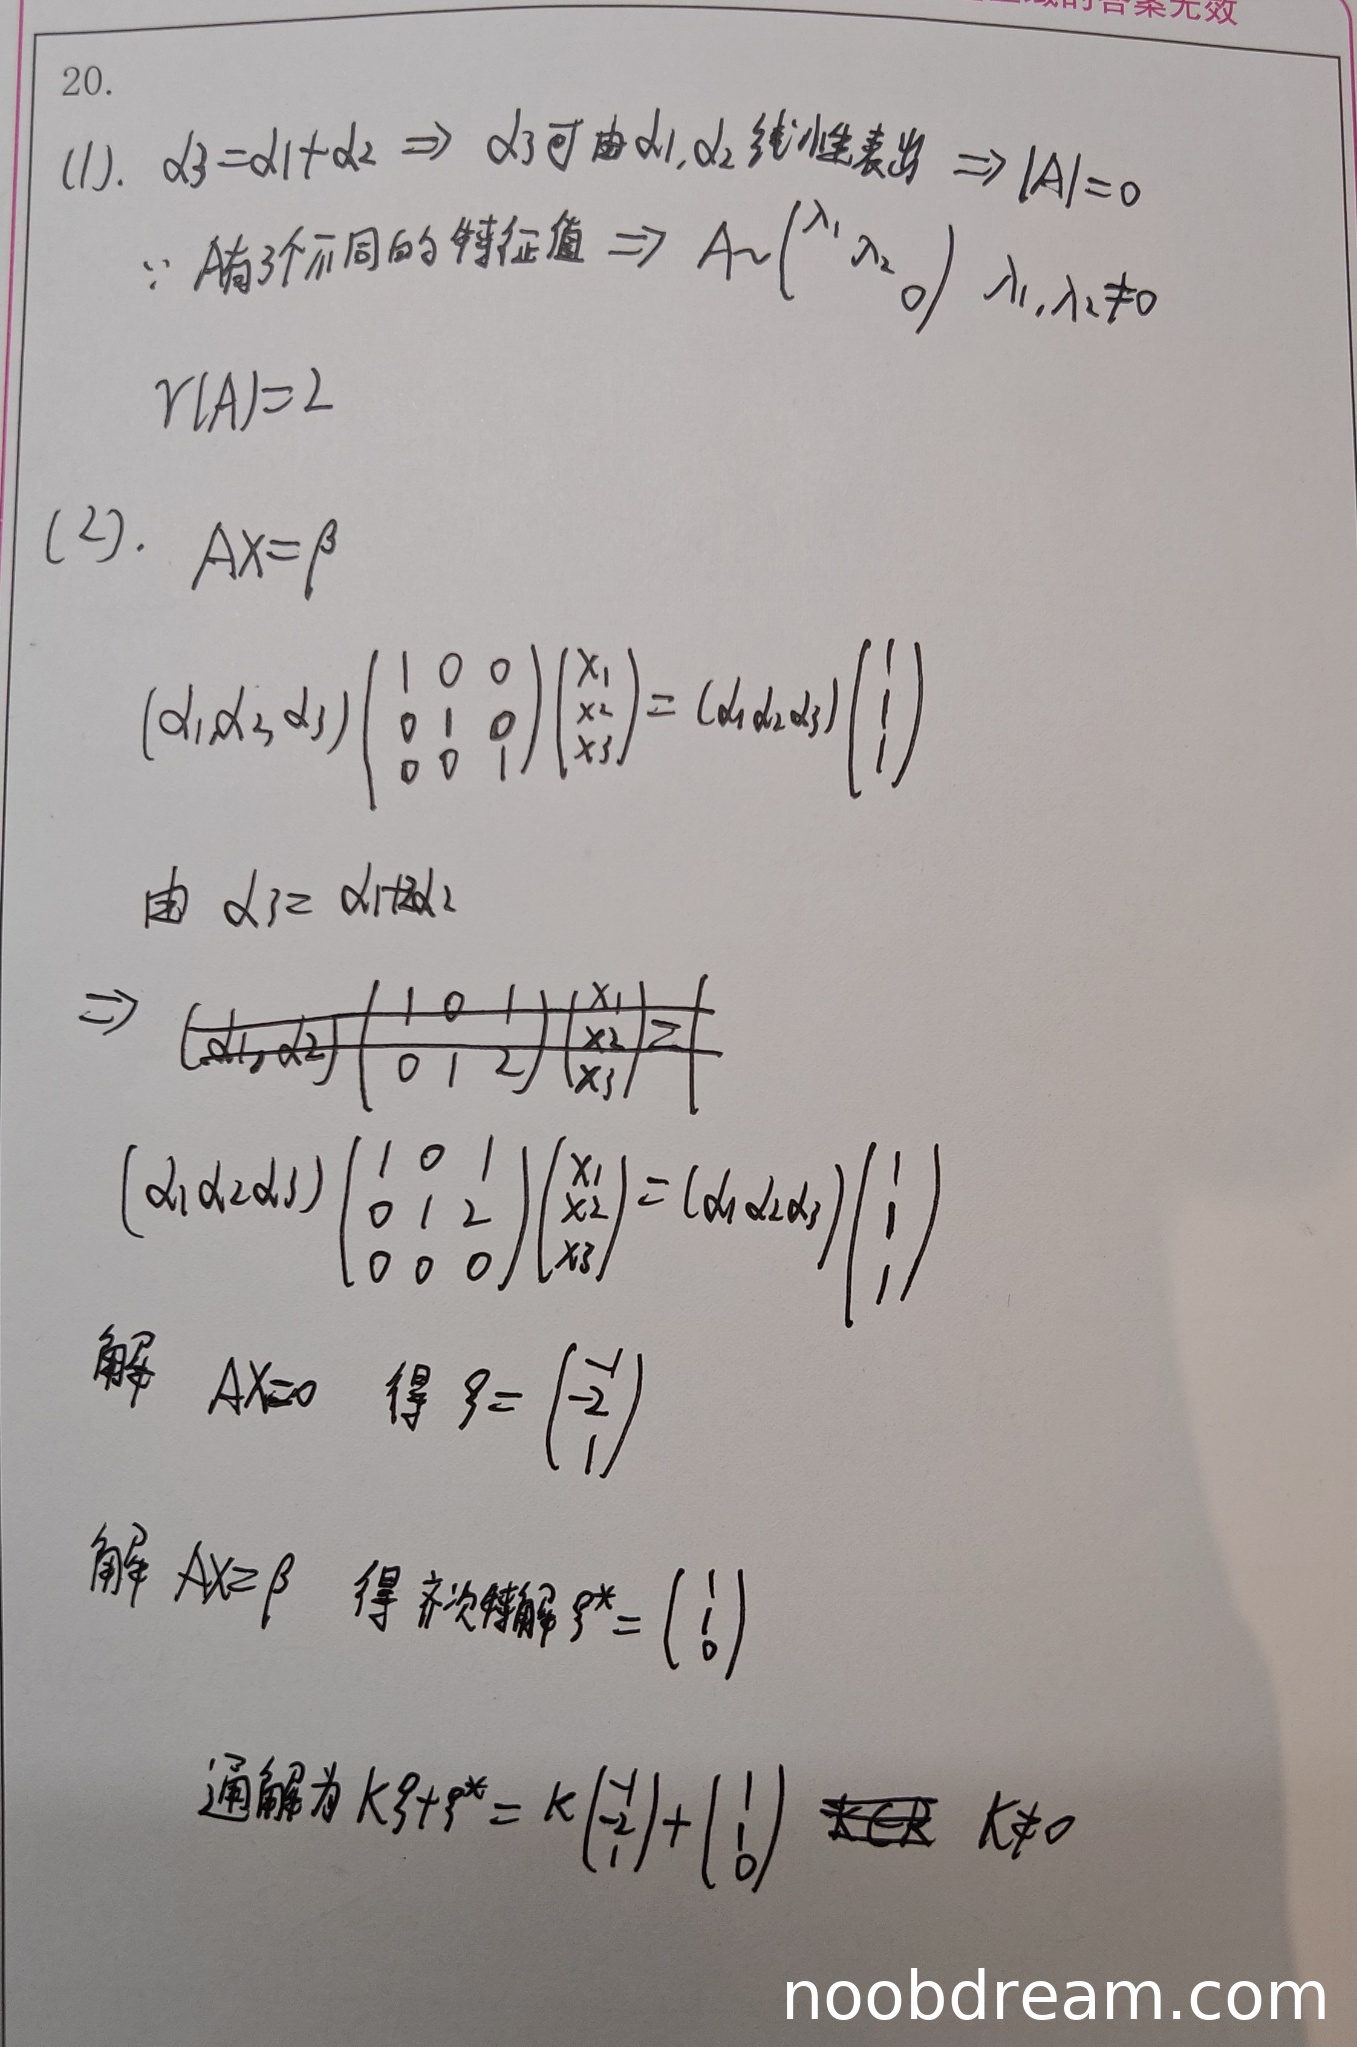 的答案无效
20.
(1). α3=α1+α2 ⇒ α3可由α1,α2线性表出 ⇒ |A|=0
∵ A有3个不同的特征值 ⇒ A~(λ1 λ2 0) λ1,λ2≠0
r(A)=2
(2). AX=β
(α1,α2,α3)(1 0 0
0 1 0
0 0 1)(x1
x2
x3)=(α1 α2 α3)(1
1
1)
由 α3= α1+2α2
⇒ (α1, α2)(1 0 1
0 1 2)(x1
x2
x3)=(
(α1 α2 α3)(1 0 1
0 1 2
0 0 0)(x1
x2
x3)=(α1 α2 α3)(1
1
1)
解 AX=0 得 ξ=(-1
-2
1)
解 AX=β 得齐次特解 ξ*=(1
1
0)
通解为 Kξ+ξ*=K(-1
-2
1)+(1
1
0) K∈R K≠0
noobdream.com